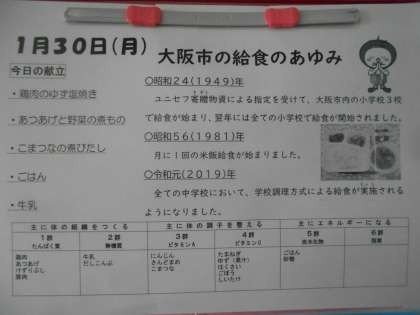 1月30日(月)
大阪市の給食のあゆみ
今日の献立
・鶏肉のゆず塩焼き
・あつあげと野菜の煮もの
・こまつなの煮びたし
・ごはん
・牛乳
〇昭和24(1949)年
ユニセフ寄贈物資による指定を受けて、大阪市内の小学校3校
で給食が始まり、翌年には全ての小学校で給食が開始されました。
〇昭和56(1981)年
月に1回の米飯給食が始まりました。
〇令和元(2019)年
全ての中学校において、学校調理方式による給食が実施される
ようになりました。
主に体の組織をつくる 主に体の調子を整える 主にエネルギーになる
1群 2群 3群 4群 5群 6群
たんぱく質 無機質 ビタミンA ビタミンC 炭水化物 脂質
鶏肉
あつあげ
けずりぶし
豚肉
牛乳
だしこんぶ
にんじん
さんどまめ
こまつな
たまねぎ
ゆず(果汁)
はくさい
ごぼう
しいたけ
ごはん
砂糖